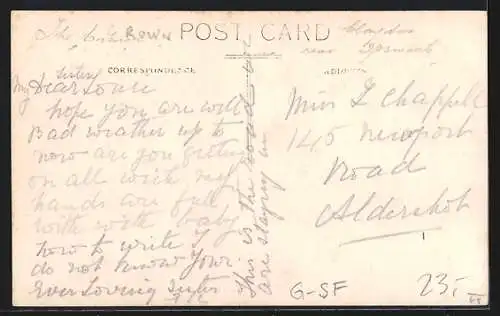 The
BROWN
POST CARD
near Ipswich
CORRESPONDENCE
Sister
My Dear Louie
hope you are well
Bad weather up to
now are you getting
on all wich my
hands are full
with with baby
how to write I
do not know Your
Ever Loving Sister
This is the road we
are staying in
Miss L Chappell
145 Newport
Road
Aldershot
G-SF
23,-